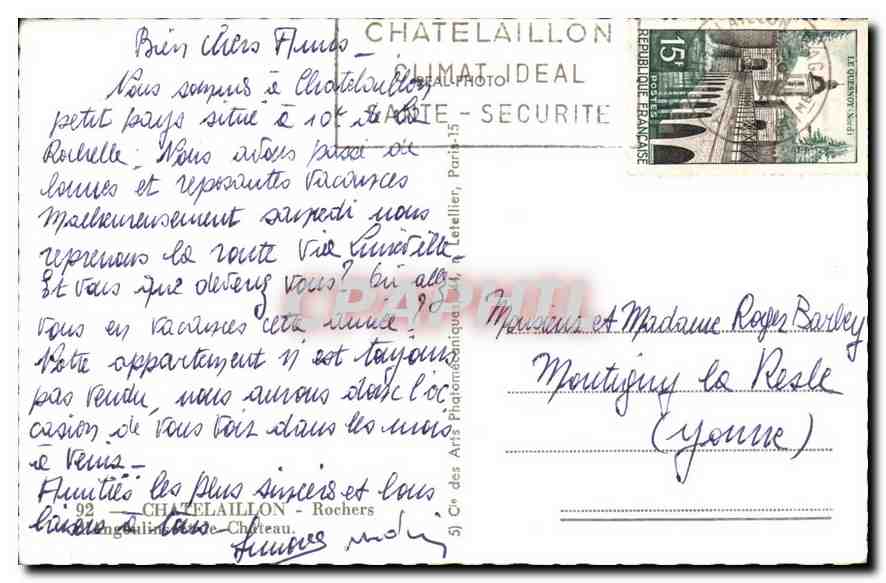 Bien chers Amis -
Nous sommes à Chatelaillon
petit pays situé à 10k de La
Rochelle. Nous avons passé de
bonnes et reposantes vacances
Malheureusement samedi nous
reprenons la route via Lunéville
Et vous que devenez vous? Où allez
vous en vacances cette année?
Notre appartement n'est toujours
pas vendu, nous aurons donc l'oc
casion de vous voir dans les mois
à venir -
Amitiés les plus sincères et bons
baisers à tous
CHATELAILLON
CLIMAT IDEAL
SANTE - SECURITE
REAL PHOTO
15F
POSTES
REPUBLIQUE FRANÇAISE
LE QUESNOY (Nord)
Monsieur et Madame Roger Barbey
Montigny la Resle
(Yonne)
5) Cie des Arts Photomécaniques, Letellier, Paris-15
92 — CHATELAILLON - Rochers
Château.
CPAPHIL